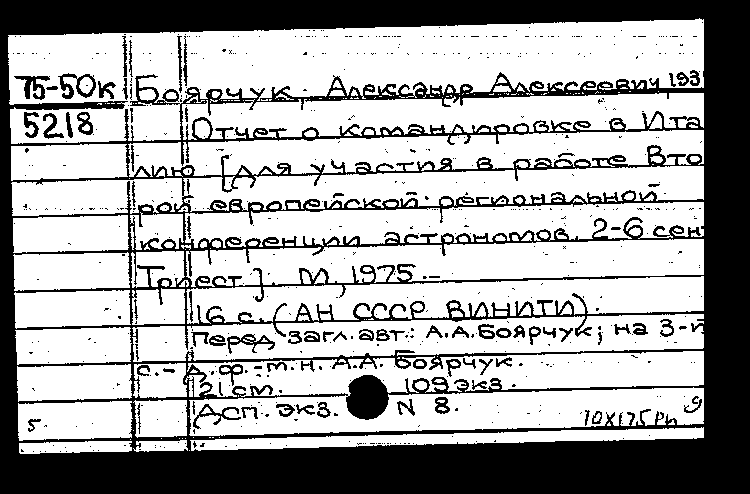 75-50к Боярчук, Александр Алексеевич, 193
5218 Отчет о командировке в Ита
лию [для участия в работе Вто
рой европейской региональной
конференции астрономов. 2-6 сен
Триест]. М., 1975.-
16 с. (АН СССР ВИНИТИ).
Перед загл. авт.: А.А.Боярчук; на 3-й
с.- д.ф.-м.н. А.А. Боярчук.
21 см. 109 экз.
ДСП. экз. N 8.
5.